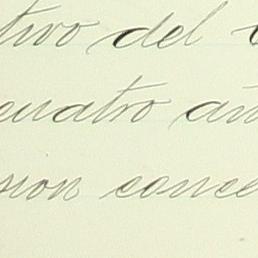 tivo del
cuatro añ
sion conce